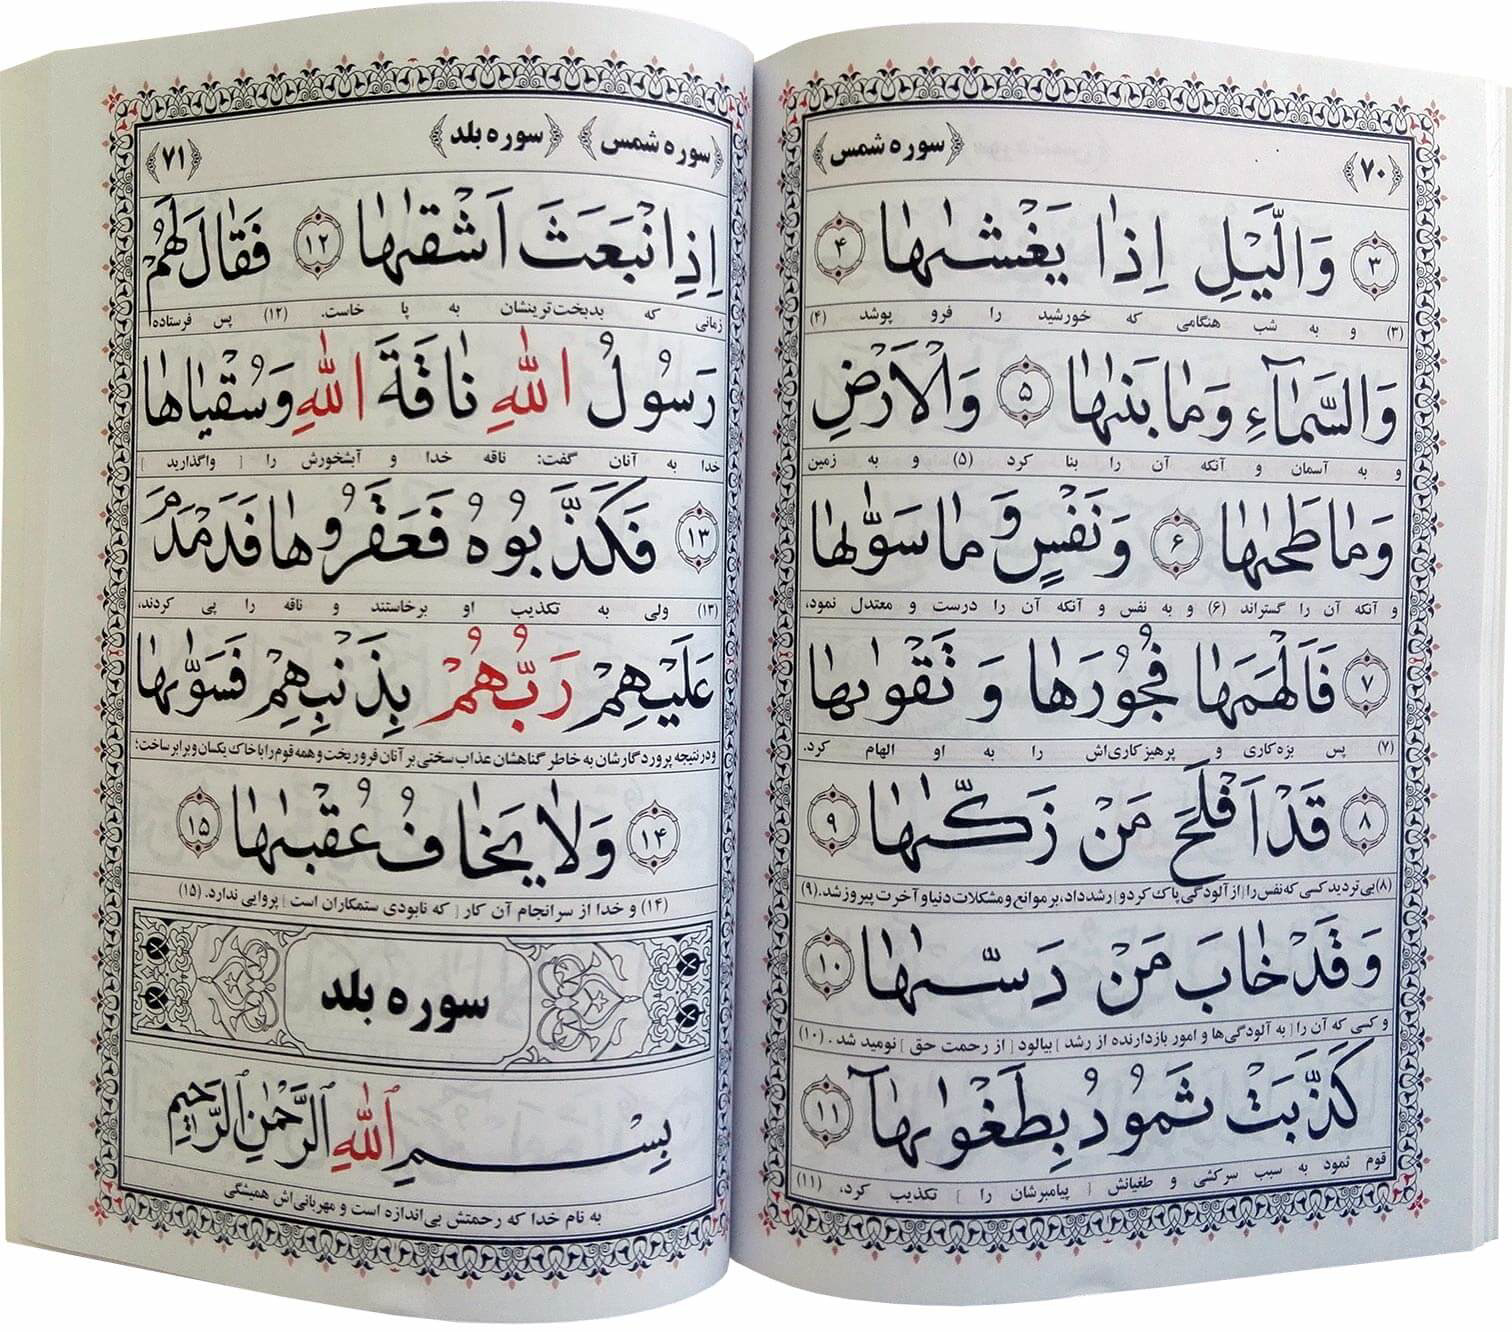 ﴿۷۰﴾ ﴿سوره شمس﴾
﴿۳﴾ وَالَّیْلِ اِذٰا یَغْشٰیهٰا ﴿۴﴾
(۳) و به شب هنگامی که خورشید را فرو پوشد (۴)
وَالسَّمٰآءِ وَمٰا بَنٰیهٰا ﴿۵﴾ وَالْاَرْضِ
و به آسمان و آنکه آن را بنا کرد (۵) و به زمین
وَمٰا طَحٰیهٰا ﴿۶﴾ وَنَفْسٍ وَ مٰا سَوّٰیهٰا
و آنکه آن را گستراند (۶) و به نفس و آنکه آن را درست و معتدل نمود،
﴿۷﴾ فَاَلْهَمَهٰا فُجُورَهٰا وَ تَقْوٰیهٰا
(۷) پس بزه‌کاری و پرهیزکاری‌اش را به او الهام کرد.
﴿۸﴾ قَدْ اَفْلَحَ مَنْ زَکّٰیهٰا ﴿۹﴾
(۸) بی‌تردید کسی که نفس را [از آلودگی پاک کرد و] رشد داد، بر موانع و مشکلات دنیا و آخرت پیروز شد. (۹)
وَ قَدْ خٰابَ مَنْ دَسّٰیهٰا ﴿۱۰﴾
و کسی که آن را [به آلودگی‌ها و امور بازدارنده از رشد] بیالود [از رحمت حق] نومید شد. (۱۰)
کَذَّبَتْ ثَمُودُ بِطَغْوٰیهٰآ ﴿۱۱﴾
قوم ثمود به سبب سرکشی و طغیانش [پیامبرشان را] تکذیب کرد. (۱۱)
﴿سوره شمس﴾ ﴿سوره بلد﴾ ﴿۷۱﴾
اِذِ انْبَعَثَ اَشْقٰیهٰا ﴿۱۲﴾ فَقٰالَ لَهُمْ
زمانی که بدبخت‌ترینشان به پا خاست. (۱۲) پس فرستاده
رَسُولُ اللّٰهِ نٰاقَةَ اللّٰهِ وَسُقْیٰاهٰا
خدا به آنان گفت: ناقه خدا و آبشخورش را [واگذارید]
﴿۱۳﴾ فَکَذَّبُوهُ فَعَقَرُوهٰا فَدَمْدَمَ
(۱۳) ولی به تکذیب او برخاستند و ناقه را پی کردند،
عَلَیْهِمْ رَبُّهُمْ بِذَنْبِهِمْ فَسَوّٰیهٰا
و در نتیجه پروردگارشان به خاطر گناهشان عذاب سختی بر آنان فرو ریخت و همه قوم را با خاک یکسان و برابر ساخت؛
﴿۱۴﴾ وَلٰا یَخٰافُ عُقْبٰیهٰا ﴿۱۵﴾
(۱۴) و خدا از سرانجام آن کار [که نابودی ستمکاران است] پروایی ندارد. (۱۵)
سوره بلد
بِسْمِ اللّٰهِ الرَّحْمٰنِ الرَّحیمِ
به نام خدا که رحمتش بی‌اندازه است و مهربانی‌اش همیشگی